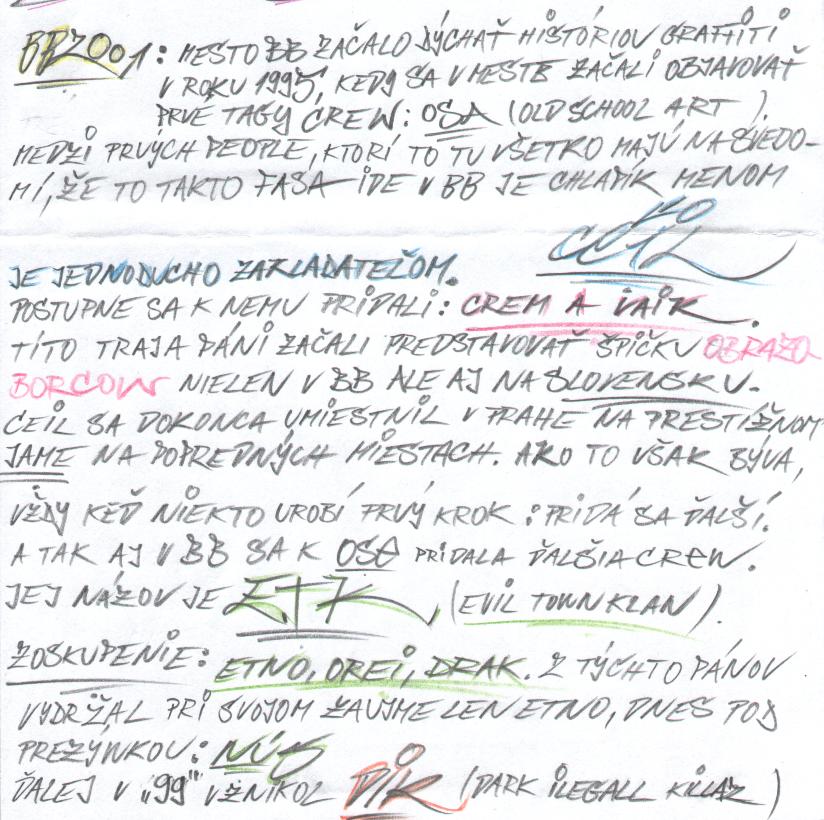 BBZOO1: MESTO BB ZAČALO DÝCHAŤ HISTÓRIOU GRAFFITI
V ROKU 1995, KEDY SA V MESTE ZAČALI OBJAVOVAŤ
PRVÉ TAGY CREW: OSA (OLD SCHOOL ART).
MEDZI PRVÝCH PEOPLE, KTORÍ TO TU VŠETKO MAJÚ NA SVEDO-
MÍ, ŽE TO TAKTO FASA IDE V BB JE CHLAPÍK MENOM
CEIL
JE JEDNODUCHO ZAKLADATEĽOM.
POSTUPNE SA K NEMU PRIDALI: CREM A IAIK.
TÍTO TRAJA PÁNI ZAČALI PREDSTAVOVAŤ ŠPIČKU OBRAZO
BORCOW NIELEN V BB ALE AJ NA SLOVENSKU.
CEIL SA DOKONCA UMIESTNIL V PRAHE NA PRESTÍŽNOM
JAME NA POPREDNÝCH MIESTACH. AKO TO VŠAK BÝVA,
VŽDY KEĎ NIEKTO UROBÍ PRVÝ KROK: PRIDÁ SA ĎALŠÍ.
A TAK AJ V BB SA K OSE PRIDALA ĎALŠIA CREW.
JEJ NÁZOV JE ETK, (EVIL TOWN KLAN).
ZOSKUPENIE: ETNO, OREI, DRAK. Z TÝCHTO PÁNOV
VYDRŽAL PRI SVOJOM ZAUJME LEN ETNO, DNES POD
PREZÝNKOU: NÚS
ĎALEJ V „99" VZNIKOL DIK (DARK ILEGALL KILLAZ)